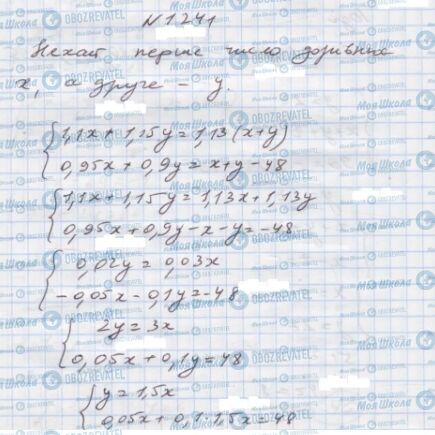 №1.241
Нехай перше число дорівнює
x, а друге – y.
1,1x + 1,15y = 1,13(x+y)
0,95x + 0,9y = x+y-48
1,1x + 1,15y = 1,13x + 1,13y
0,95x + 0,9y - x - y = -48
0,02y = 0,03x
-0,05x - 0,1y = -48
2y = 3x
0,05x + 0,1y = 48
y = 1,5x
0,05x + 0,1·1,5x = 48